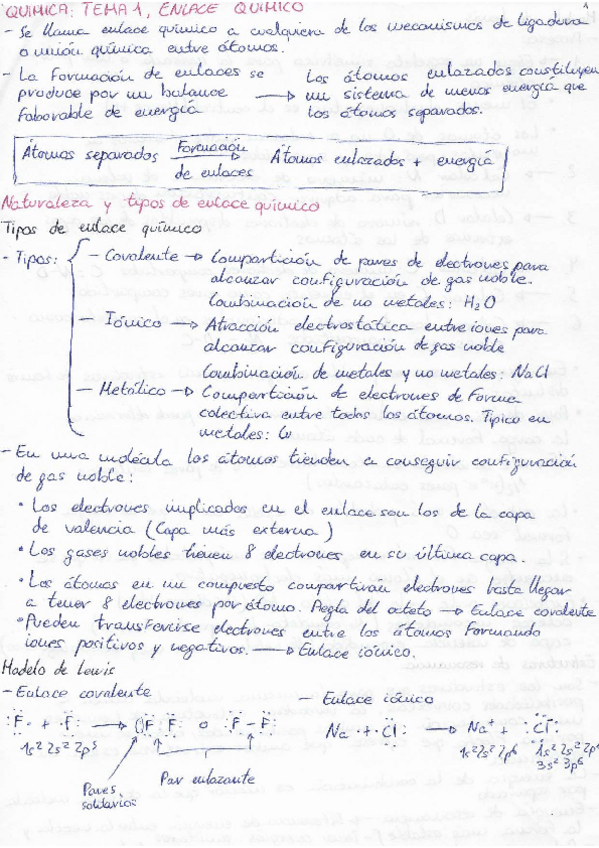 QUIMICA: TEMA 1, ENLACE QUIMICO
1
- Se llama enlace químico a cualquiera de los mecanismos de ligadura
o unión química entre átomos.
- La formación de enlaces se
produce por un balance
faborable de energía
→ Los átomos enlazados constituyen
un sistema de menos energía que
los átomos separados.
Átomos separados Formación de enlaces → Átomos enlazados + energía
Naturaleza y tipos de enlace químico
Tipos de enlace químico
- Tipos: - Covalente → Compartición de pares de electrones para
alcanzar configuración de gas noble.
Combinación de no metales: H₂O
- Iónico → Atracción electrostática entre iones para
alcanzar configuración de gas noble
Combinación de metales y no metales: NaCl
- Metálico → Compartición de electrones de forma
colectiva entre todos los átomos. Típico en
metales:
- En una molécula los átomos tienden a conseguir configuración
de gas noble:
• Los electrones implicados en el enlace son los de la capa
de valencia (Capa más externa)
• Los gases nobles tienen 8 electrones en su última capa.
• Los átomos en un compuesto compartiran electrones hasta llegar
a tener 8 electrones por átomo. Regla del octeto → Enlace covalente
• Pueden transferirse electrones entre los átomos formando
iones positivos y negativos. → Enlace iónico.
Modelo de Lewis
- Enlace covalente
F + F → F F o F - F
1s² 2s² 2p⁵
Pares
solitarios
Par enlazante
- Enlace iónico
Na + Cl → Na⁺ + Cl⁻
1s² 2s² 2p⁶
1s² 2s² 2p⁶
3s² 3p⁶